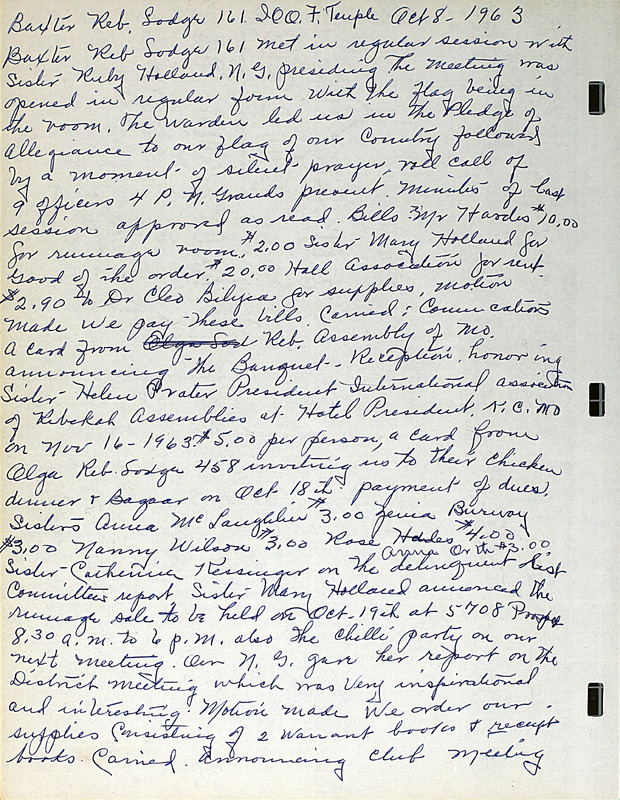 Baxter Reb. Lodge 161. I.O.O.F. Temple Oct 8 - 1963
Baxter Reb Lodge 161 met in regular session with
Sister Ruby Holland, N.G. presiding The Meeting was
opened in regular form with the flag being in
the room. The Warden led us in the Pledge of
Allegiance to our flag of our Country followed
by a moment of silent prayer, roll call of
9 officers 4 P. N. Grands present. Minutes of last
session approved as read. Bills: Mr Hardis $10.00
for rummage room, $2.00 Sister Mary Holland for
good of the order, $20.00 Hall Association for rent.
$2.90 to Dr Cleo for supplies, motion
made we pay these bills. Carried: Comunication
A card from Olga Lod Reb. Assembly of Mo.
announcing the Banquet - Reception, honoring
Sister Helen Prater President International association
of Rebekah Assemblies at Hotel President, K.C. MO
on Nov 16 - 1963. $5.00 per person, a card from
Olga Reb. Lodge 458 inviting us to their chicken
dinner & Bazaar on Oct 18th. payment of dues.
Sisters Anna McLaughlin $3.00 Zenia
$3.00 Nanny Wilson $3.00 Rose $4.00
Orth $3.00
Sister Catherine Kessinger on the delinquent list
Committee report Sister Mary Holland announced the
rummage sale to be held on Oct. 19th at 5708
8.30 a.m. to 6 p.m. also the chilli party on our
next meeting. Our N. G. gave her report on the
District meeting which was very inspirational
and interesting. Motion made We order our
supplies Consisting of 2 warrant books & receipt
books. Carried. Announcing club meeting